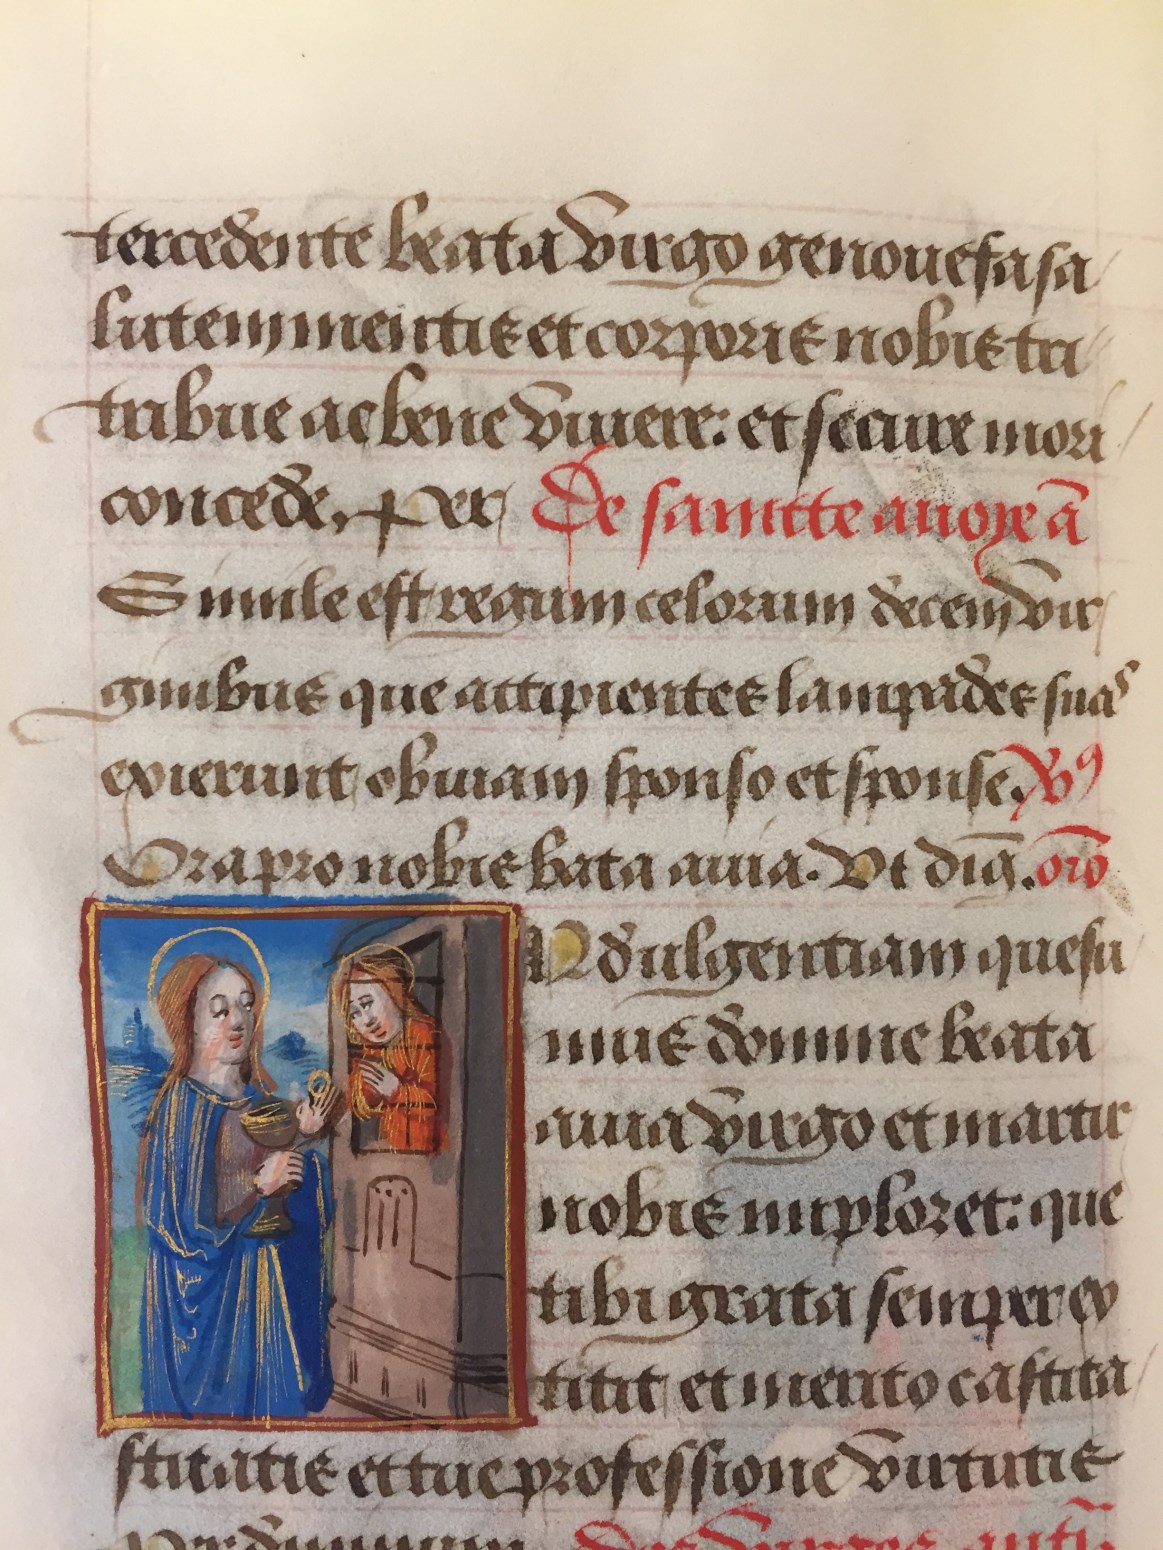 tercedente beata virgo genouefa sa
lutem mentis et corporis nobis tri
tribue ac bene viuere: et secure mori
concede, per De saincte auoye ā
Simile est regnum celorum decem vir
ginibus que accipientes lampades suas
exierunt obuiam sponso et sponse. V9
Ora pro nobis bata auia. Vt dig̅. oro̅
Indulgentiam quesu
mus domine beata
auia virgo et martir
nobis imploret: que
tibi grata semper ex
titit et merito castita
stitatis et tue professione virtutis
Per dominum